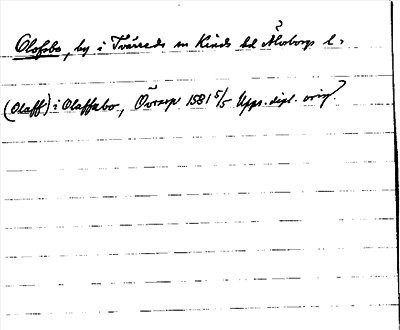 Olofsbo, by i Tvärreds sn Kinds hd Älvborgs l.
(Olaff) i Olaffzbo, 1581 5/5 Upps. dipl. orig.